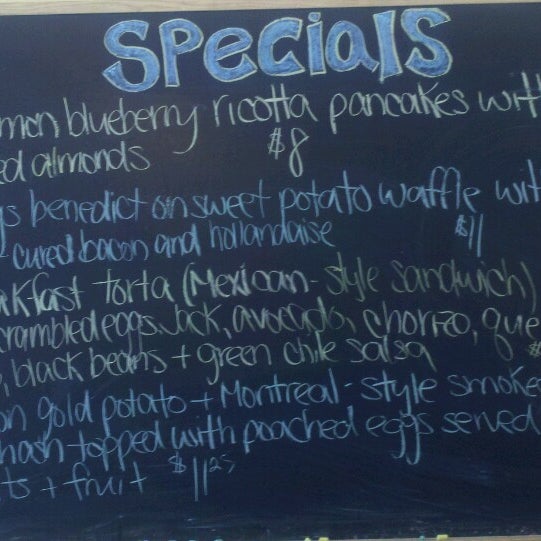 Specials
mon blueberry ricotta pancakes with
ed almonds $8
gs benedict on sweet potato waffle wit
-cured bacon and hollandaise $11
akfast torta (Mexican-style sandwich)
crambled eggs, Jack, avocado, chorizo, que
, black beans + green chile salsa $
on gold potato + Montreal-style smoked
hash topped with poached eggs served
ts + fruit $11.25